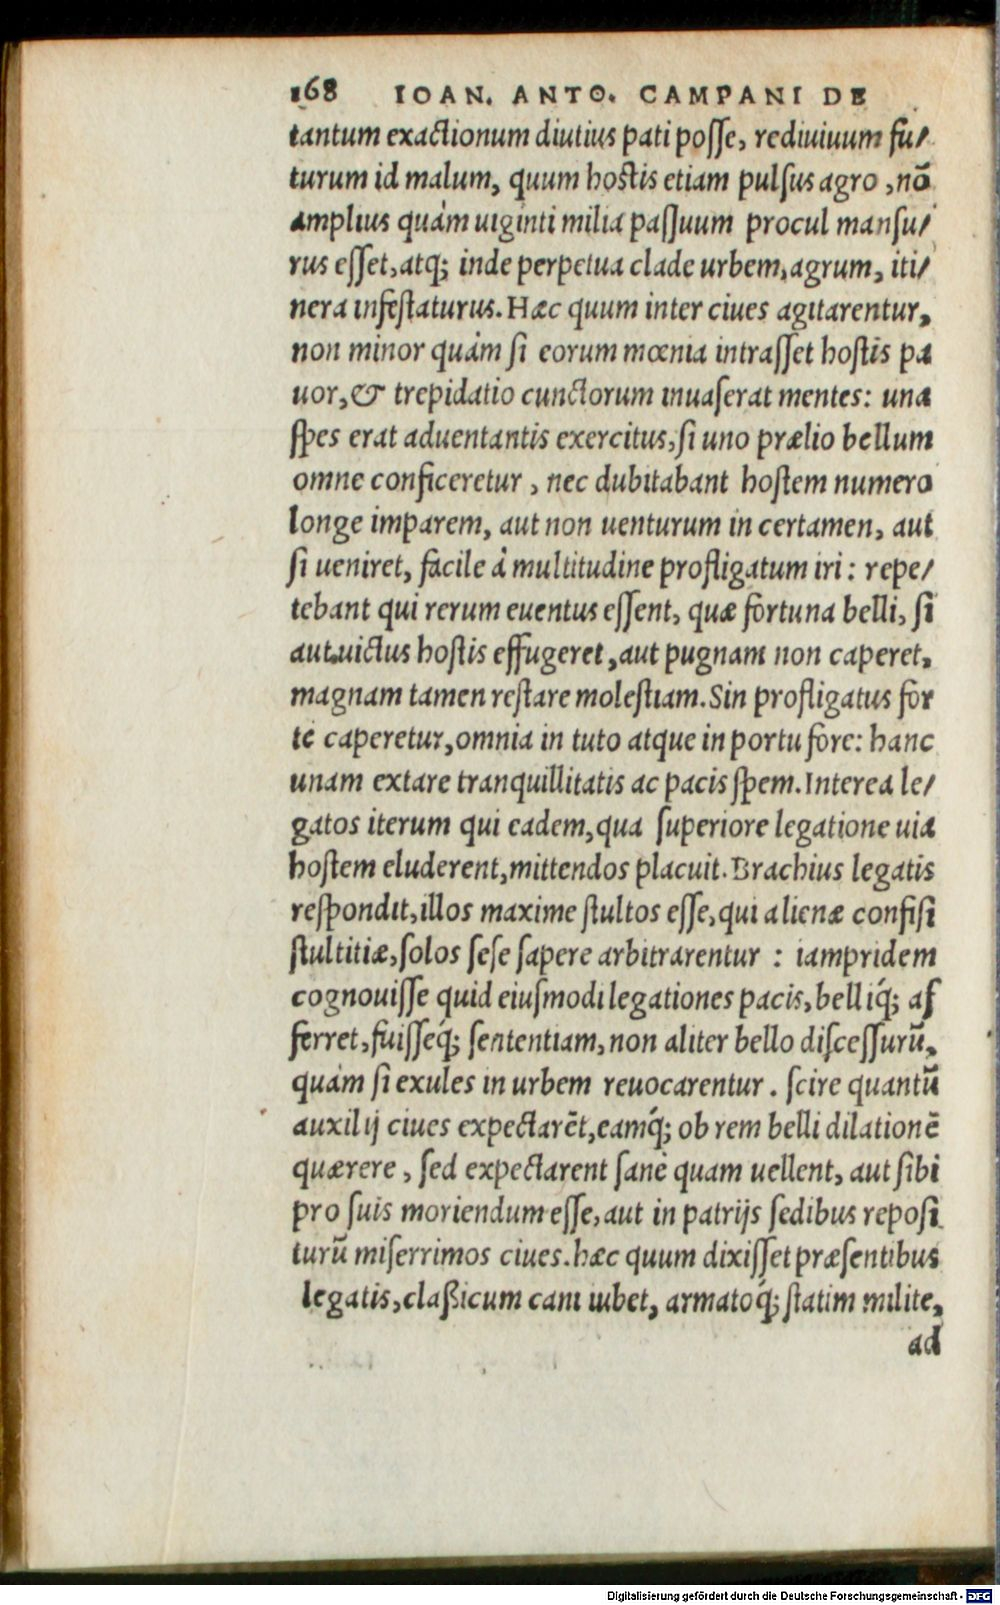 168 IOAN. ANTO. CAMPANI DE
tantum exactionum diutius pati posse, rediuiuum fu/
turum id malum, quum hostis etiam pulsus agro ,nō
amplius quàm uiginti milia passuum procul mansu/
rus esset,atq; inde perpetua clade urbem,agrum, iti/
nera infestaturus. Hæc quum inter ciues agitarentur,
non minor quàm si eorum mœnia intrasset hostis pa
uor,& trepidatio cunctorum inuaserat mentes: una
spes erat aduentantis exercitus,si uno prælio bellum
omne conficeretur , nec dubitabant hostem numero
longe imparem, aut non uenturum in certamen, aut
si ueniret, facile à multitudine profligatum iri : repe/
tebant qui rerum euentus essent, quæ fortuna belli, si
aut uictus hostis effugeret ,aut pugnam non caperet,
magnam tamen restare molestiam. Sin profligatus for
te caperetur,omnia in tuto atque in portu fore: hanc
unam extare tranquillitatis ac pacis spem. Interea le/
gatos iterum qui eadem,qua superiore legatione uia
hostem eluderent,mittendos placuit. Brachius legatis
respondit,illos maxime stultos esse,qui alienæ confisi
stultitiæ,solos sese sapere arbitrarentur : iampridem
cognouisse quid eiusmodi legationes pacis, belliq́; af
ferret,fuisseq́; sententiam,non aliter bello discessurū,
quàm si exules in urbem reuocarentur . scire quantū
auxilij ciues expectarēt,eamq́; ob rem belli dilationē
quærere , sed expectarent sanè quam uellent, aut sibi
pro suis moriendum esse,aut in patrijs sedibus reposi
turū miserrimos ciues.hæc quum dixisset præsentibus
legatis,claßicum cani iubet, armatoq́; statim milite,
ad
Digitalisierung gefördert durch die Deutsche Forschungsgemeinschaft - DFG